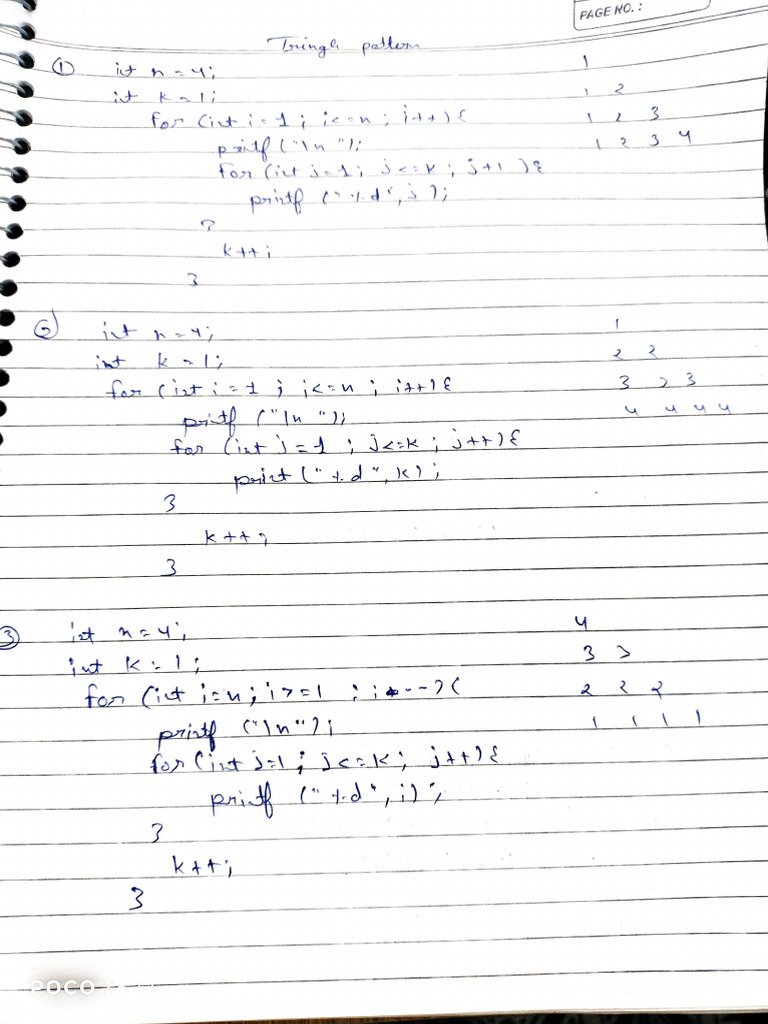 PAGE NO.:
Tringle pattern
① int n = 4; 1
int k = 1; 1 2
for (int i = 1 ; i <= n ; i++) { 1 2 3
printf ("\n "); 1 2 3 4
for (int j = 1 ; j <= k ; j+1 ) {
printf ("%d", j );
}
k++ ;
}
② int n = 4; 1
int k = 1; 2 2
for (int i = 1 ; i <= n ; i++) { 3 3 3
printf ("\n "); 4 4 4 4
for (int j = 1 ; j <= k ; j++) {
print ("%d", k) ;
}
k++ ;
}
③ int n = 4; 4
int k = 1; 3 3
for (int i = n ; i >= 1 ; i--) { 2 2 2
printf ("\n") ; 1 1 1 1
for (int j=1 ; j <= k ; j++) {
printf ("%d", i) ;
}
k++;
}
POCO